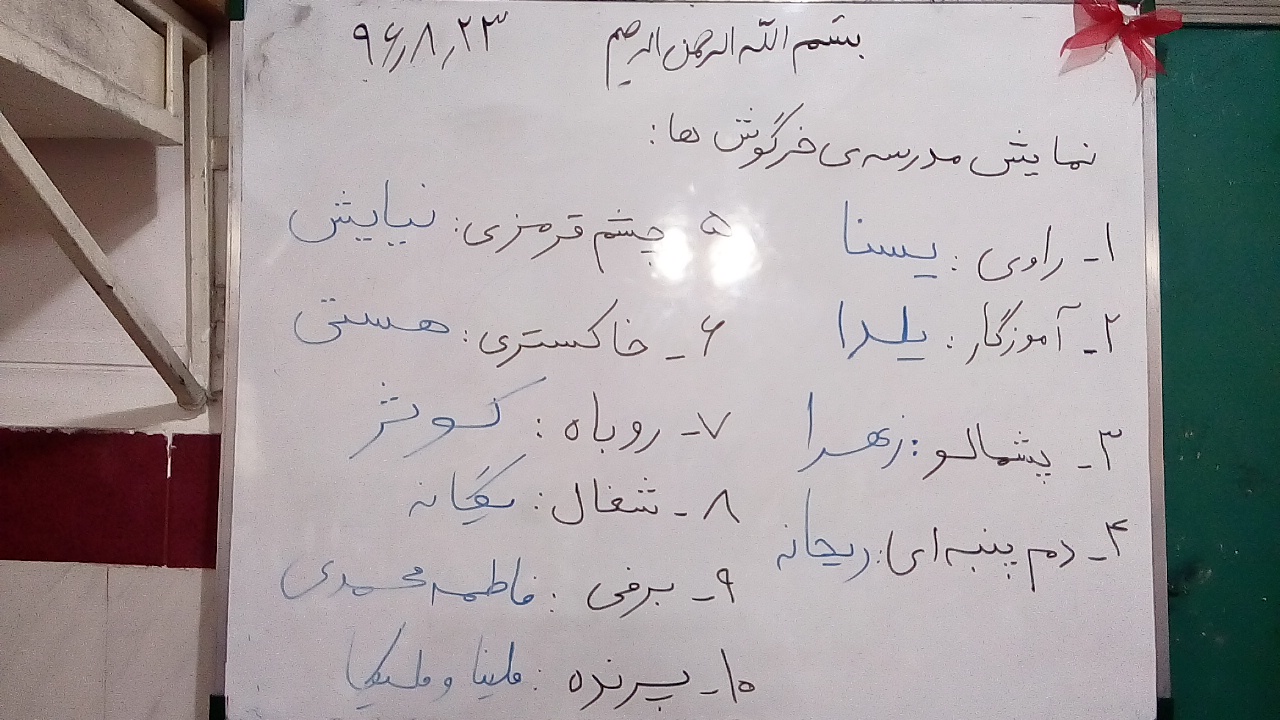 بسم الله الرحمن الرحیم
۹۶٫۸٫۲۳
نمایش مدرسه ی خرگوش ها:
۱- راوی: یسنا
۲- آموزگار: یلدا
۳- پشمالو: زهرا
۴- دم پنبه ای: ریحانه
۵ چشم قرمزی: نیایش
۶- خاکستری: هستی
۷- روباه: کوثر
۸- شغال: یگانه
۹- برفی: فاطمه محمدی
۱۰- پرنده: ملینا و ملیکا